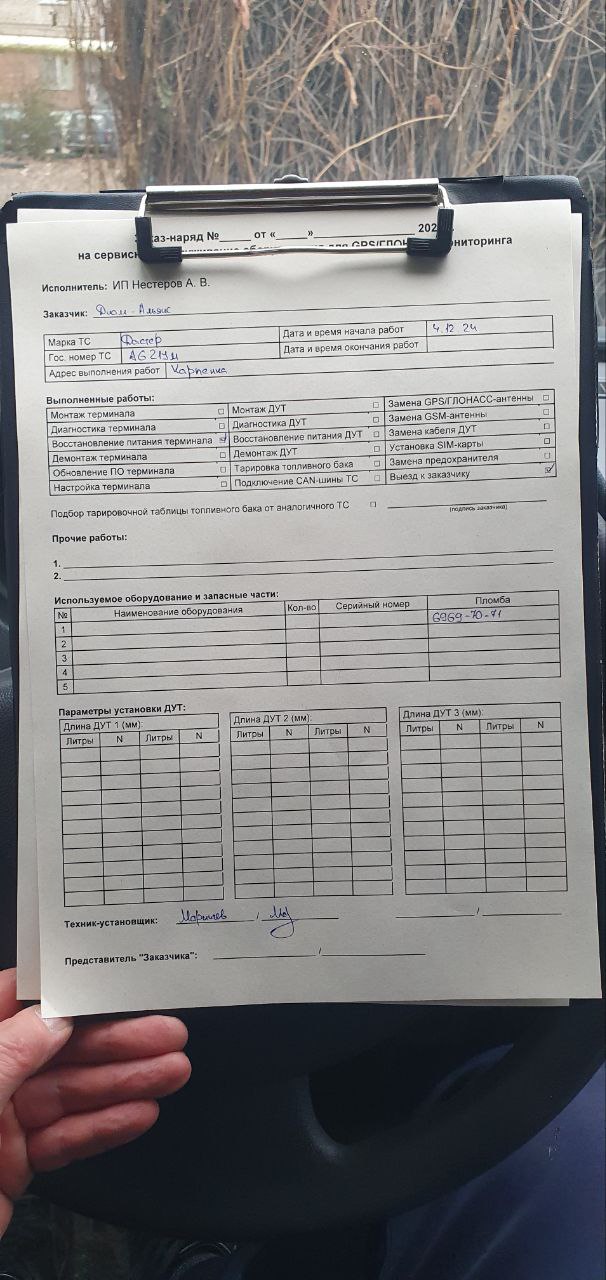 аз-наряд №_____ от «_____»_______________ 202
на сервисн GPS/ГЛОН ониторинга
Исполнитель: ИП Нестеров А. В.
Заказчик:
Марка ТС Дастер Дата и время начала работ 4.12.24
Гос. номер ТС Дата и время окончания работ
Адрес выполнения работ
Выполненные работы:
Монтаж терминала □ Монтаж ДУТ □ Замена GPS/ГЛОНАСС-антенны □
Диагностика терминала □ Диагностика ДУТ □ Замена GSM-антенны □
Восстановление питания терминала ☑ Восстановление питания ДУТ □ Замена кабеля ДУТ □
Демонтаж терминала □ Демонтаж ДУТ □ Установка SIM-карты □
Обновление ПО терминала □ Тарировка топливного бака □ Замена предохранителя □
Настройка терминала □ Подключение CAN-шины ТС □ Выезд к заказчику ☑
Подбор тарировочной таблицы топливного бака от аналогичного ТС □
(подпись заказчика)
Прочие работы:
1.
2.
Используемое оборудование и запасные части:
№ Наименование оборудования Кол-во Серийный номер Пломба
1 6969-70-71
2
3
4
5
Параметры установки ДУТ:
Длина ДУТ 1 (мм): Длина ДУТ 2 (мм): Длина ДУТ 3 (мм):
Литры N Литры N Литры N Литры N Литры N Литры N
Техник-установщик: / /
Представитель "Заказчика": /